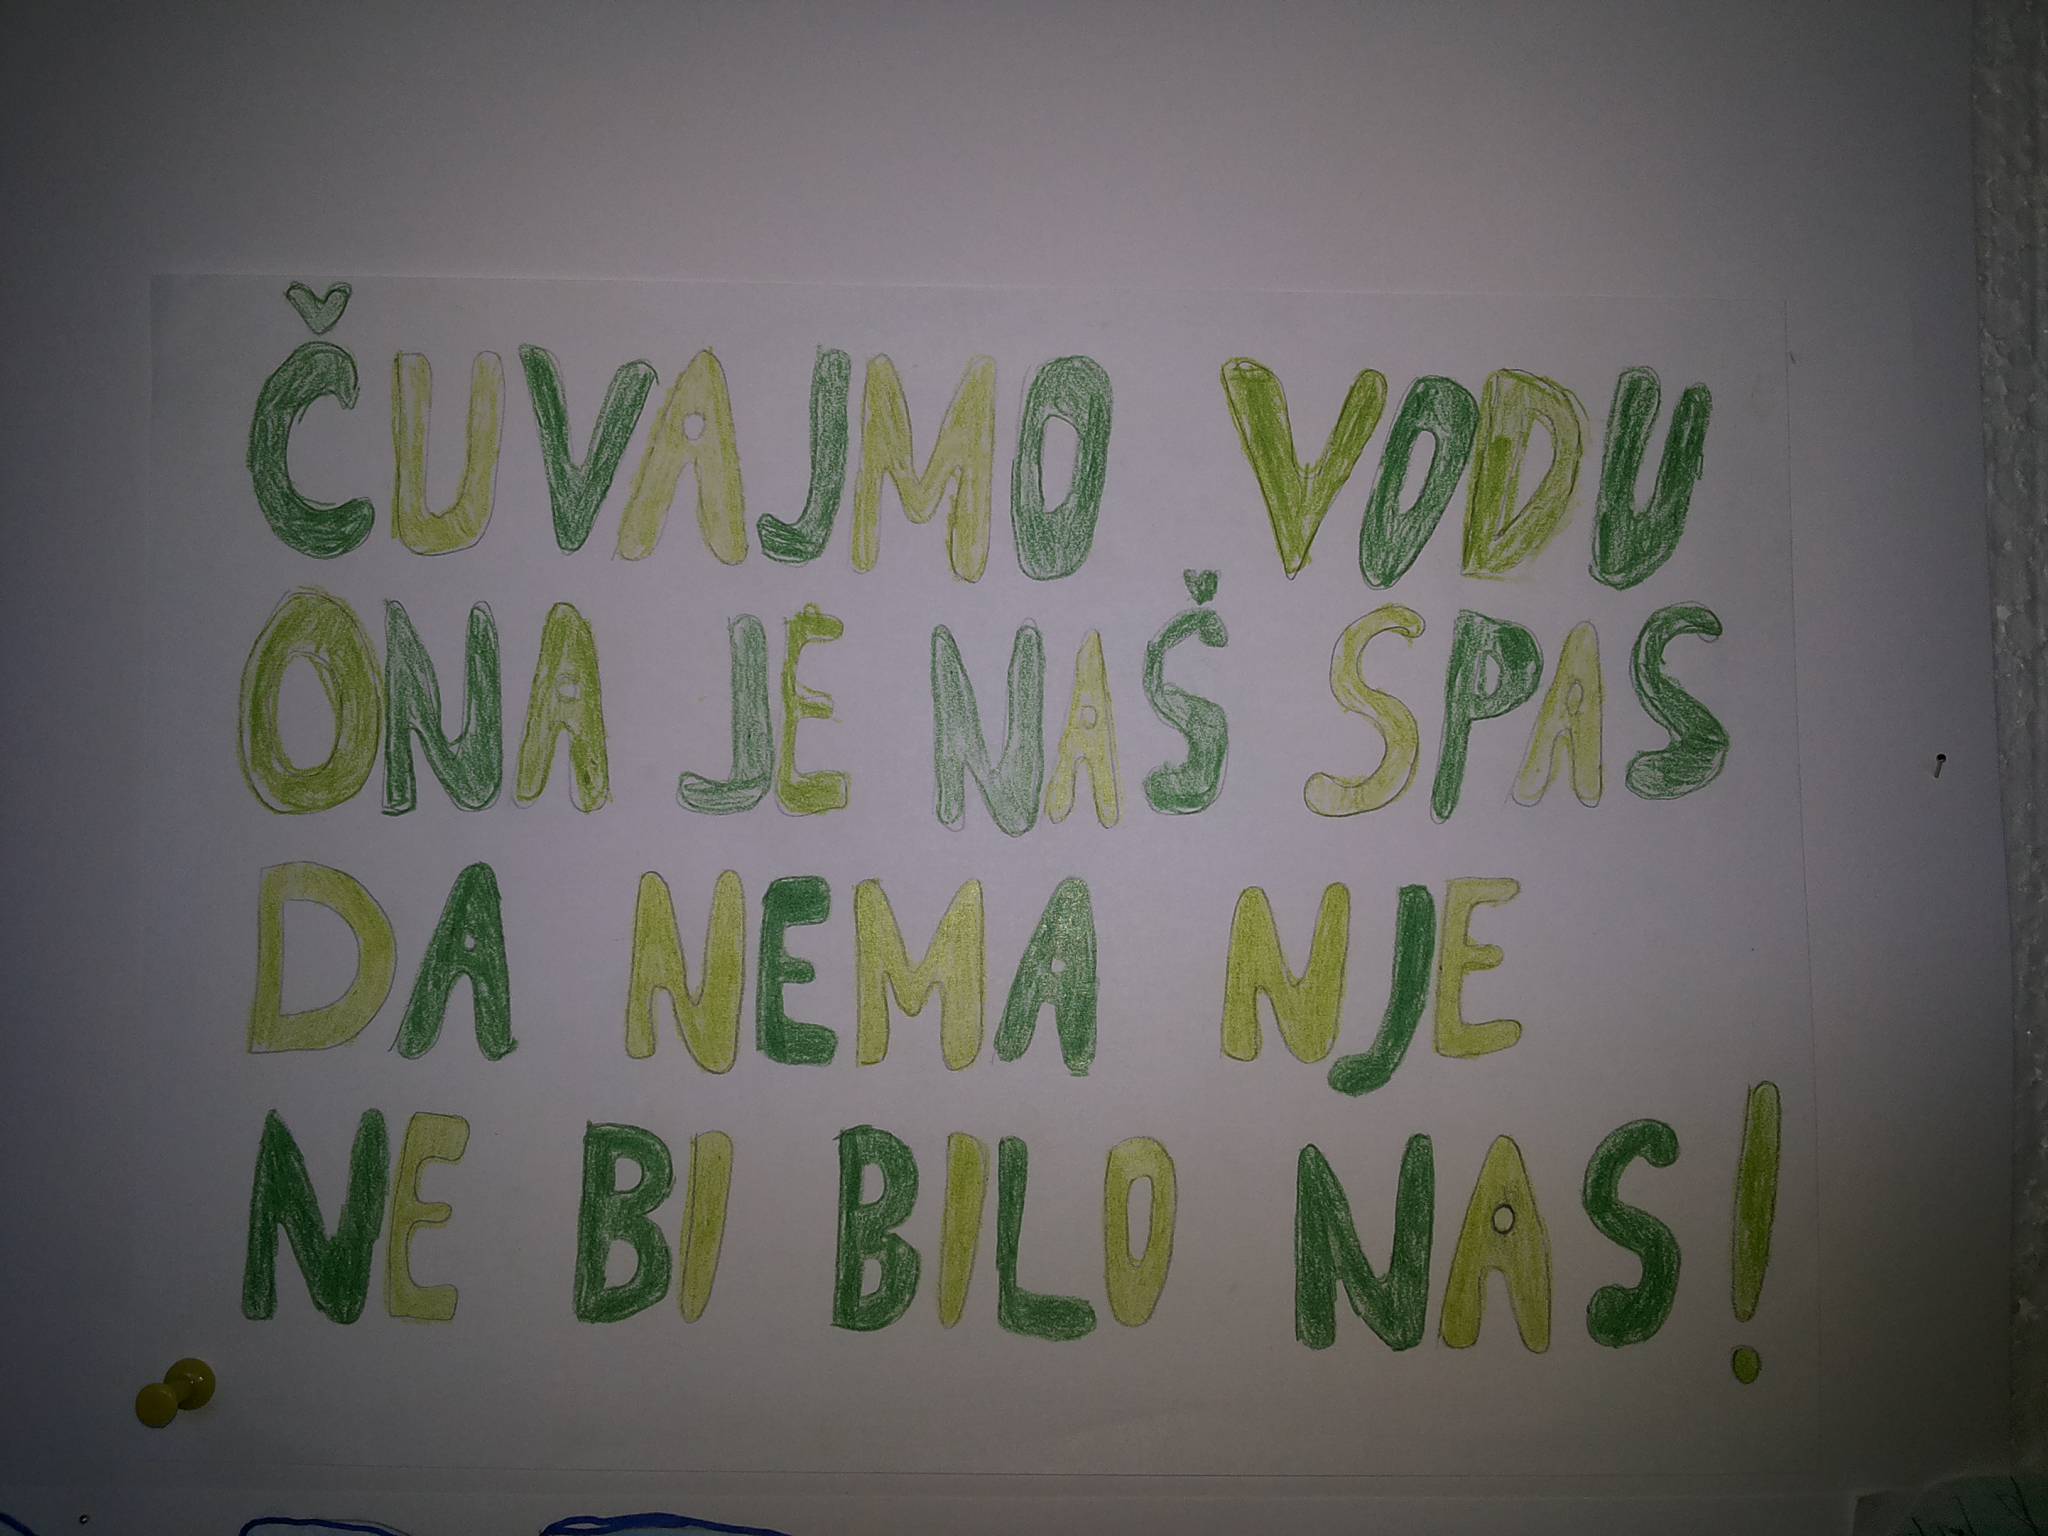 ČUVAJMO VODU
ONA JE NAŠ SPAS
DA NEMA NJE
NE BI BILO NAS!